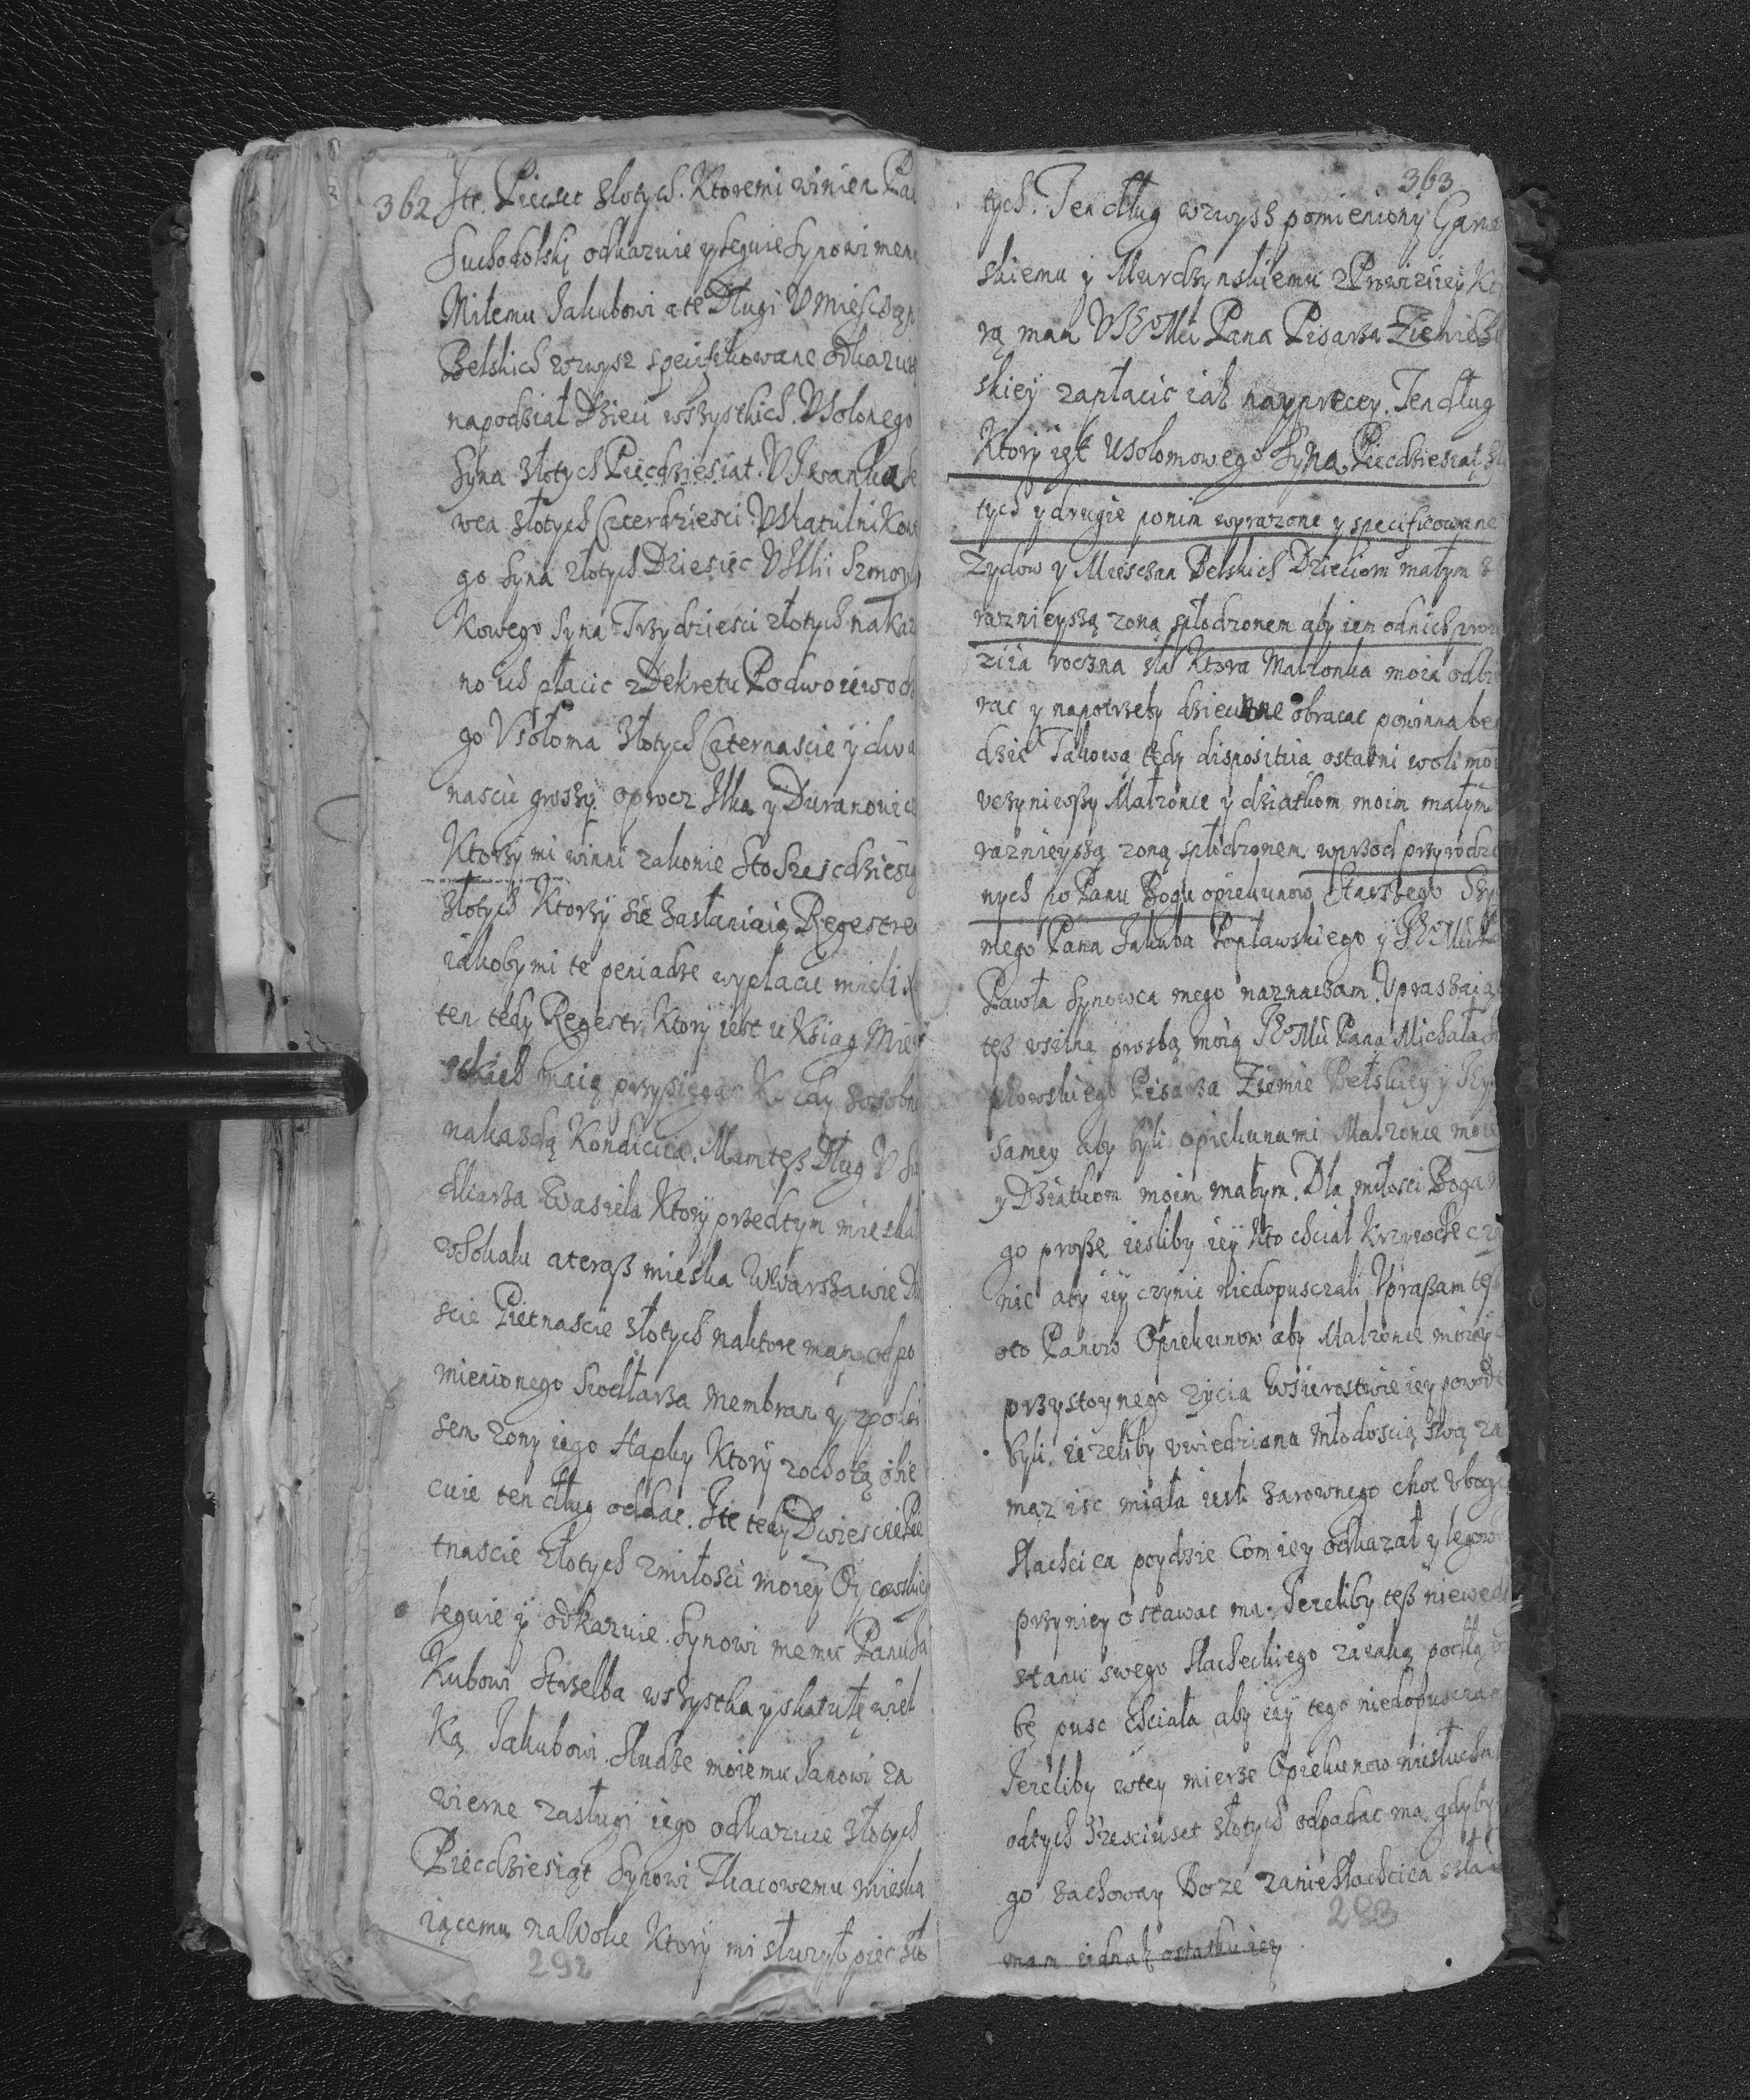 362
Ite. Piecset złotych. Ktoremi winien Pan
Suchodolskį odkazuie y leguie Synowi mem
Miłemu Jakubowi a te Długi V Miesczą
Bełskich wzwysz specifikowane odkazuię
na podział Dzieci wszystkich. V Solonego
Syna złotych Piecdziesiat. V Iwanka
wca złotych Czterdziesci. V Skatulnikow
go Syna złotych Dziesięc V Illi Szmoył
kowego Syna Trzydziesci złotych nakaz
no ich płacic z Dekretu Podwoiewodz
go V Sołoma złotych Czternascie y dwa
nascie groszy oprocz Ilka y Duranowica
Ktorzy mi winni zakonie Sto Szescdziesią
złotych Ktorzy się zasłaniaią Regestrem
iakoby mi te peniadze wypłacic mieli
ten tedy Regestr Ktory iest u Ksiag Miey
skich maią przysiegac Kazdy zosobna
nakazdą Kondicią. Mam tesz Dług V Sio
dlarza Wasiela Ktory przedtym mieskał
w Sokalu a terasz mieska W Warszawie Dwie
scie Pietnascie złotych na ktore mąm od po
mienionego Siodlarza Membran y z podpi
sem zony iego Hapky Ktory zochotą obie
cuie ten dług oddac. Ite tedy Dwiescie Pie
tnascie złotych z miłosci moiey Oycowskiey
leguie y odkazuie Synowi memu Panu Ja
Kubowi Strzelba wszystka y skatułę wiel
Ką Jakubowi. Słudze moiemu Janowi za
wierne zasługi iego odkazuie złotych
Piecdziesiąt Synowi Tkacowemu mieska
iącemu na Wolie Ktory mi słuzył piec sło
292
363
tych. Ten dług wzwysz pomieniony Garw
skiemu y Murdzynskiemu z Prowiziey Kto
rą mam V Pana Pisarza Ziemie Beł
skiey zapłacic iak nayprecey. Ten dług
Ktory iest u Solomowego Syna Piecdziesiąt zło
tych y drugie ponim wyrazone y specificowane
Zydow y Miesczan Bełskich Dzieciom małym z
raznieyszą zoną spłodzonem aby iem od nich prowi
ziia roczna sła Ktora Małzonka moia odbi
rac y na potrzeby dziecinne obracac powinna be
dzie Takową tedy dispositiia ostatni woli moi
vczyniwszy Małzonce y dziatkom moim małym
raznieyszą zoną spłodzonem wprzod przyrodzo
nych po Panu Bogu opiekunow Starszego Sy
mego Pana Jakuba Popławskiego y
Pawła Synowca mego naznaczam. Vpraszaiąc
tesz vsilną prosbą moią Pana Michała
płowskiego Pisarza Ziemie Bełskiey y
samey aby byli opiekunami Małzonce moie
y Dziatkom moim małym. Dla miłosci Boga
go prosze iesliby iey kto chciał krzywdę czy
nic aby iey czynic niedopusczali Vpraszam tesz
oto Panow Opiekunow aby Małzonce moiey
przystoynego zycia w sierostwie iey powode
byli iezeliby vwiedziona młodoscią swą za
mąz isc miała iesli zarownego choc vbog
slachcica poydzie Com iey odkazał y legow
przy niey ostawac ma. Jezeliby tesz niewed
stanu swego slacheckiego za iaką podłą
bę pusc chciała aby iey tego niedopusczan
Jezeliby wtey mierze Opiekunow niesłucha
od tych szesciuset złotych odpadac ma gdyby
go zachoway Boze zanieslachcica szła
293
mam iednak ostatku iey